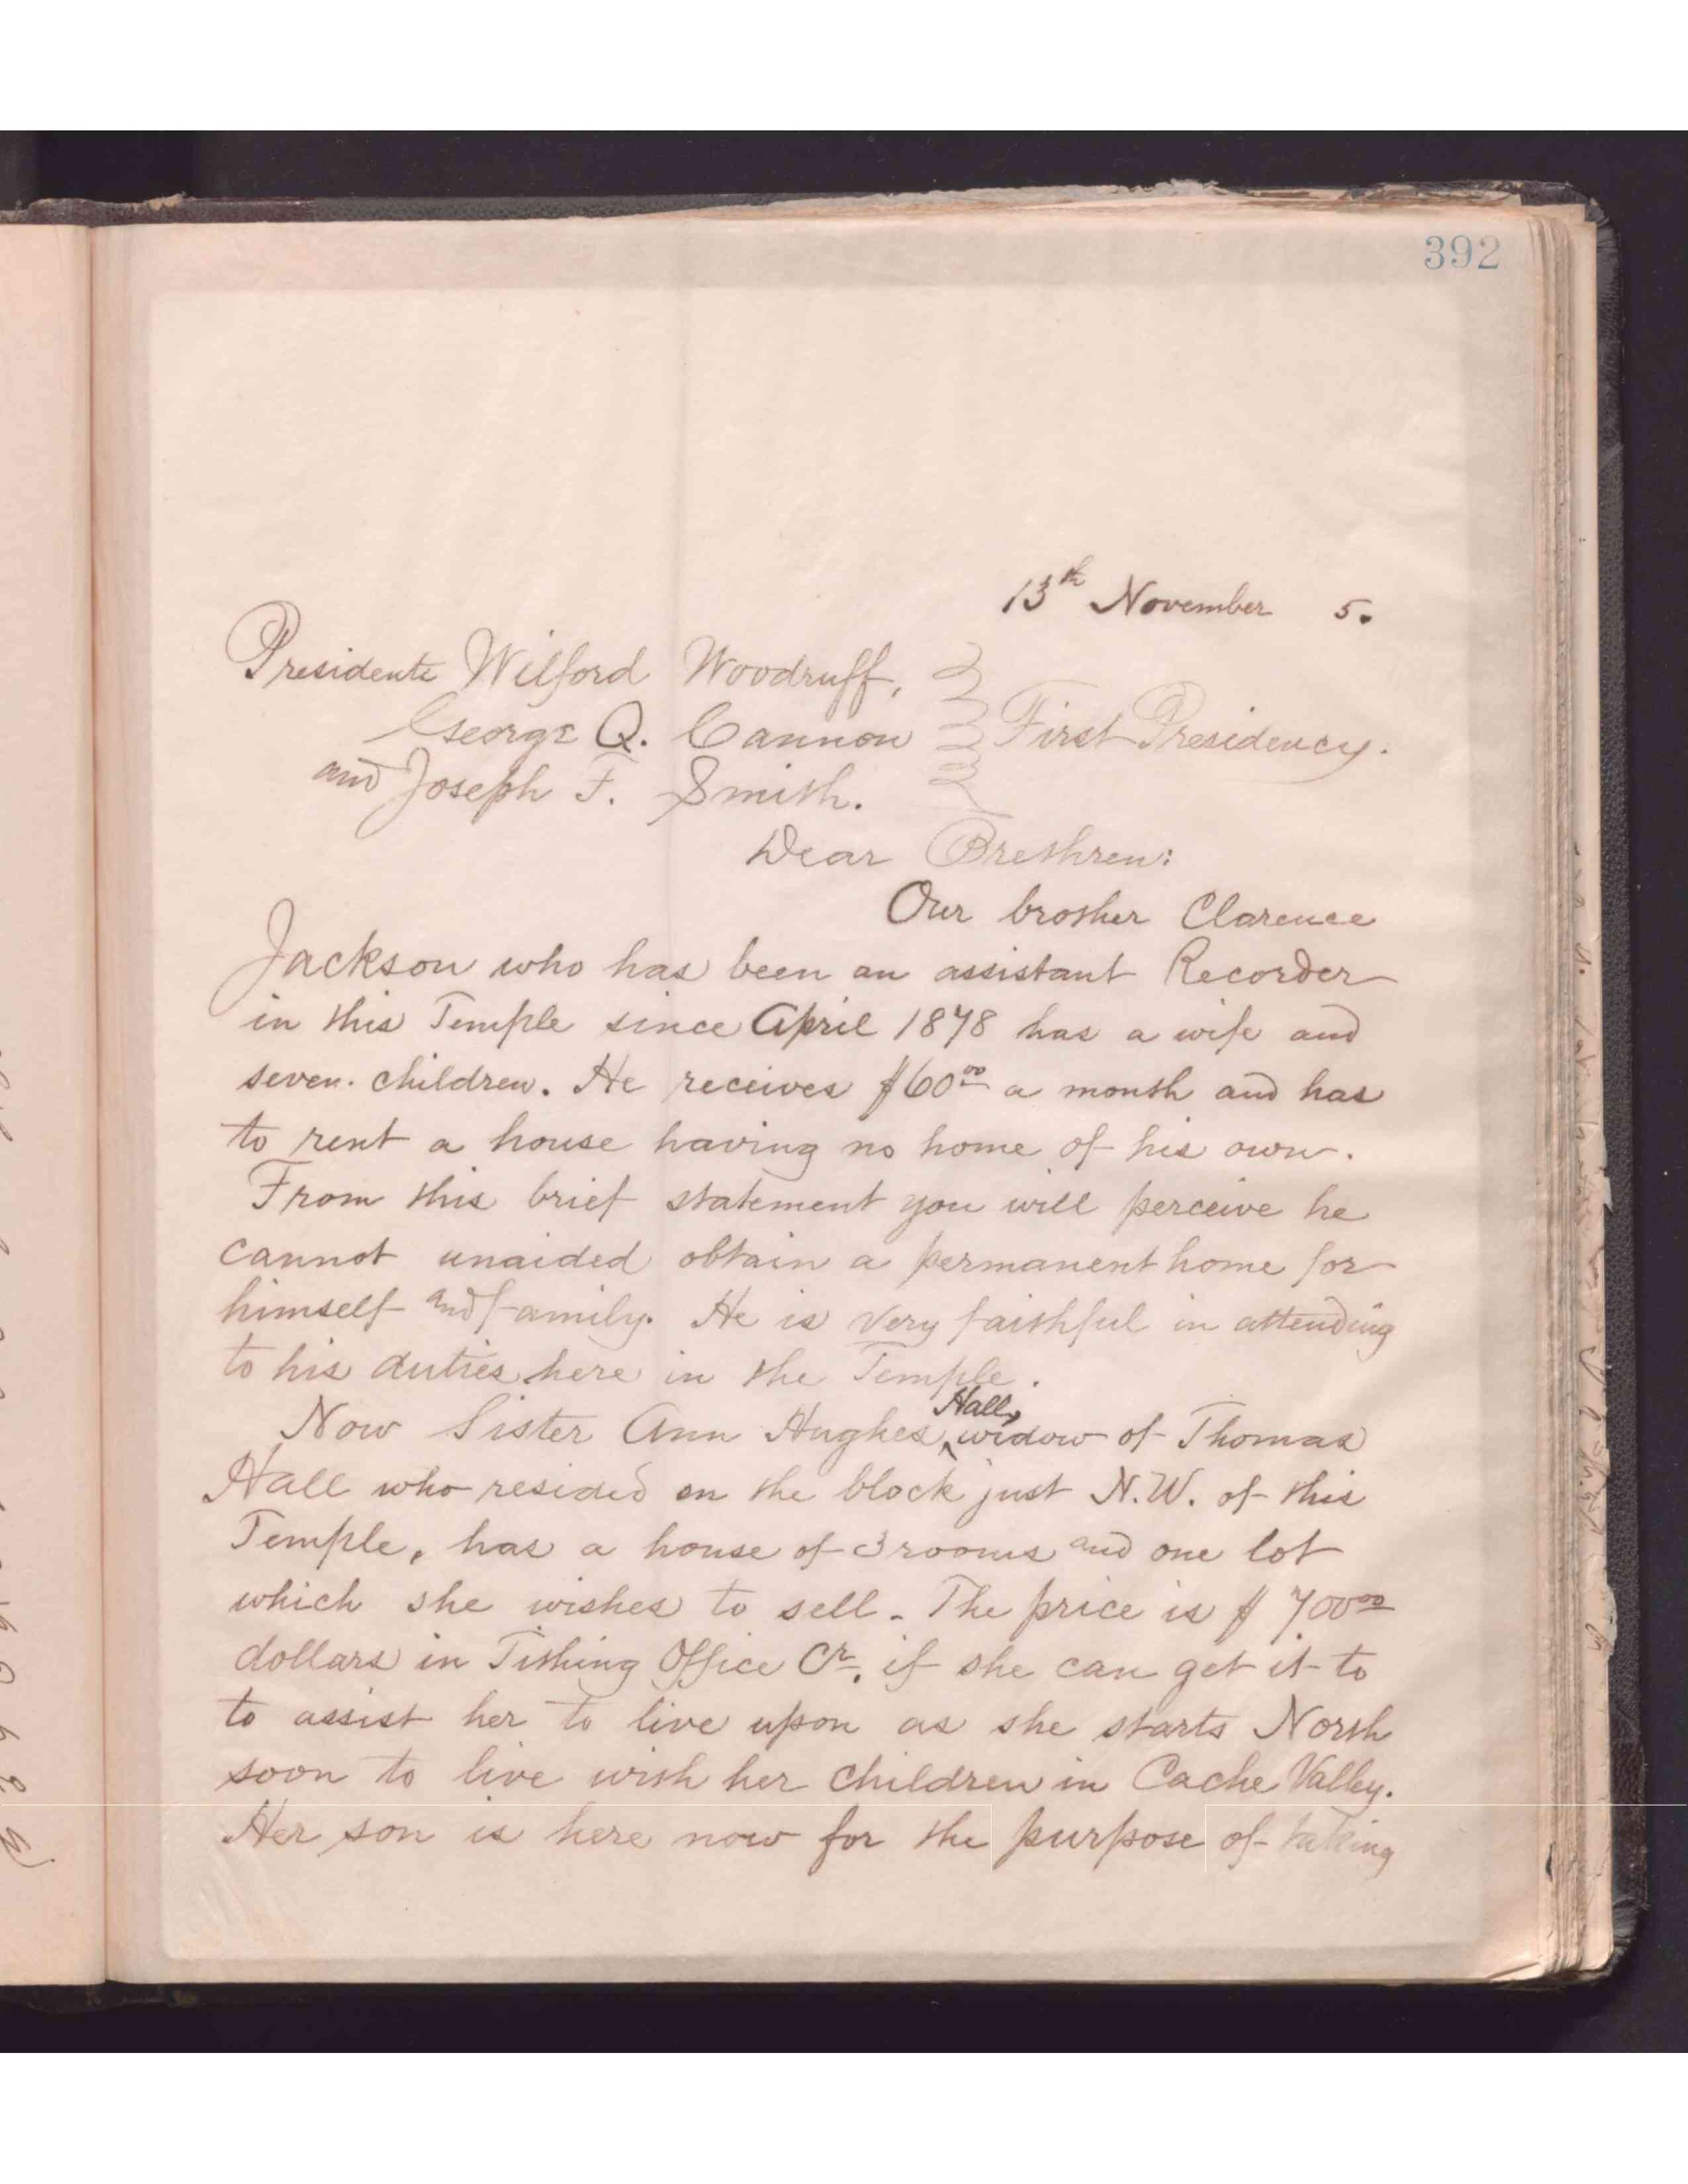 392
13th November 5.
Presidents Wilford Woodruff,
George Q. Cannon First Presidency.
and Joseph F. Smith.
Dear Brethren:
Our brother Clarence
Jackson who has been an assistant Recorder
in this Temple since April 1878 has a wife and
seven. children. He receives $6000 a month and has
to rent a house having no home of his own.
From this brief statement you will perceive he
cannot unaided obtain a permanent home for
himself and family. He is very faithful in attending
to his duties here in the Temple.
Now Sister Ann Hughes Hall, widow of Thomas
Hall who resided on the block just N.W. of this
Temple, has a house of 3 rooms and one lot
which she wishes to sell. The price is $ 70000
dollars in Tithing Office Cr. if she can get it to
to assist her to live upon as she starts North
soon to live with her children in Cache Valley.
Her son is here now for the purpose of taking